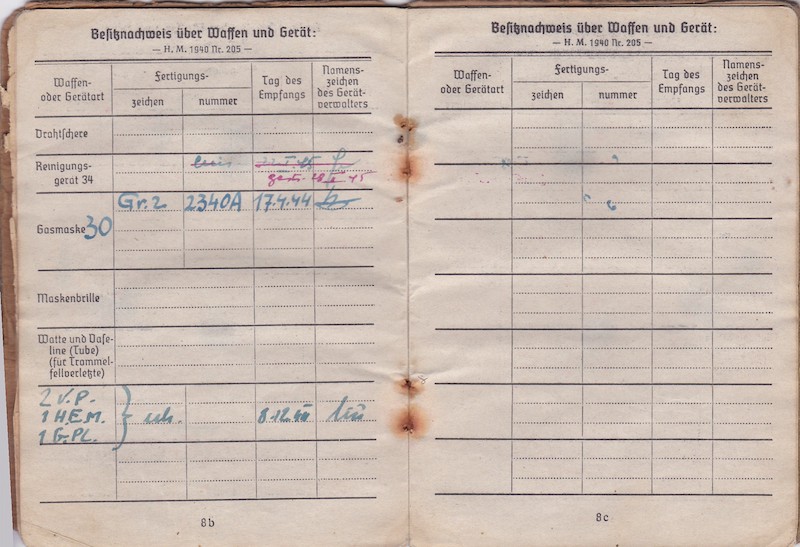 Besitznachweis über Waffen und Gerät:
— H. M. 1940 Nr. 205 —
Waffen-
oder Gerätart
Fertigungs-
zeichen
nummer
Tag des
Empfangs
Namens-
zeichen
des Gerät-
verwalters
Drahtschere
Reinigungs-
gerät 34
45
45
Gasmaske 30 Gr. 2 2340A 17.4.44
Maskenbrille
Watte und Vase-
line (Tube)
(für Trommel-
fellverletzte)
2 V.P.
1 H.E.M. 8.12.44
1 G.Pl.
8b
Besitznachweis über Waffen und Gerät:
— H. M. 1940 Nr. 205 —
Waffen-
oder Gerätart
Fertigungs-
zeichen
nummer
Tag des
Empfangs
Namens-
zeichen
des Gerät-
verwalters
8c